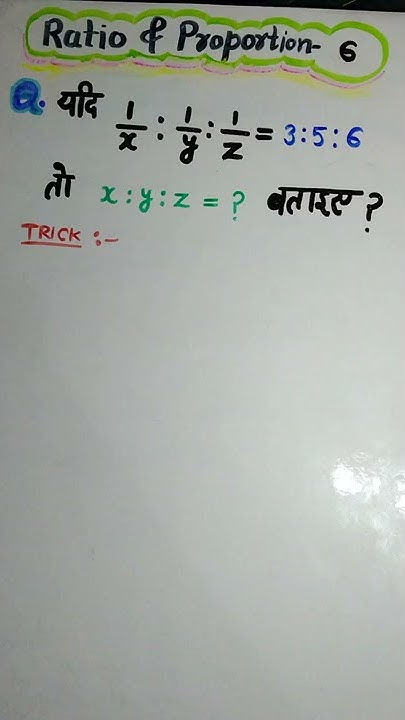 Ratio & Proportion- 6
Q. यदि 1/x : 1/y : 1/z = 3:5:6
तो x:y:z = ? बताइए ?
TRICK :-